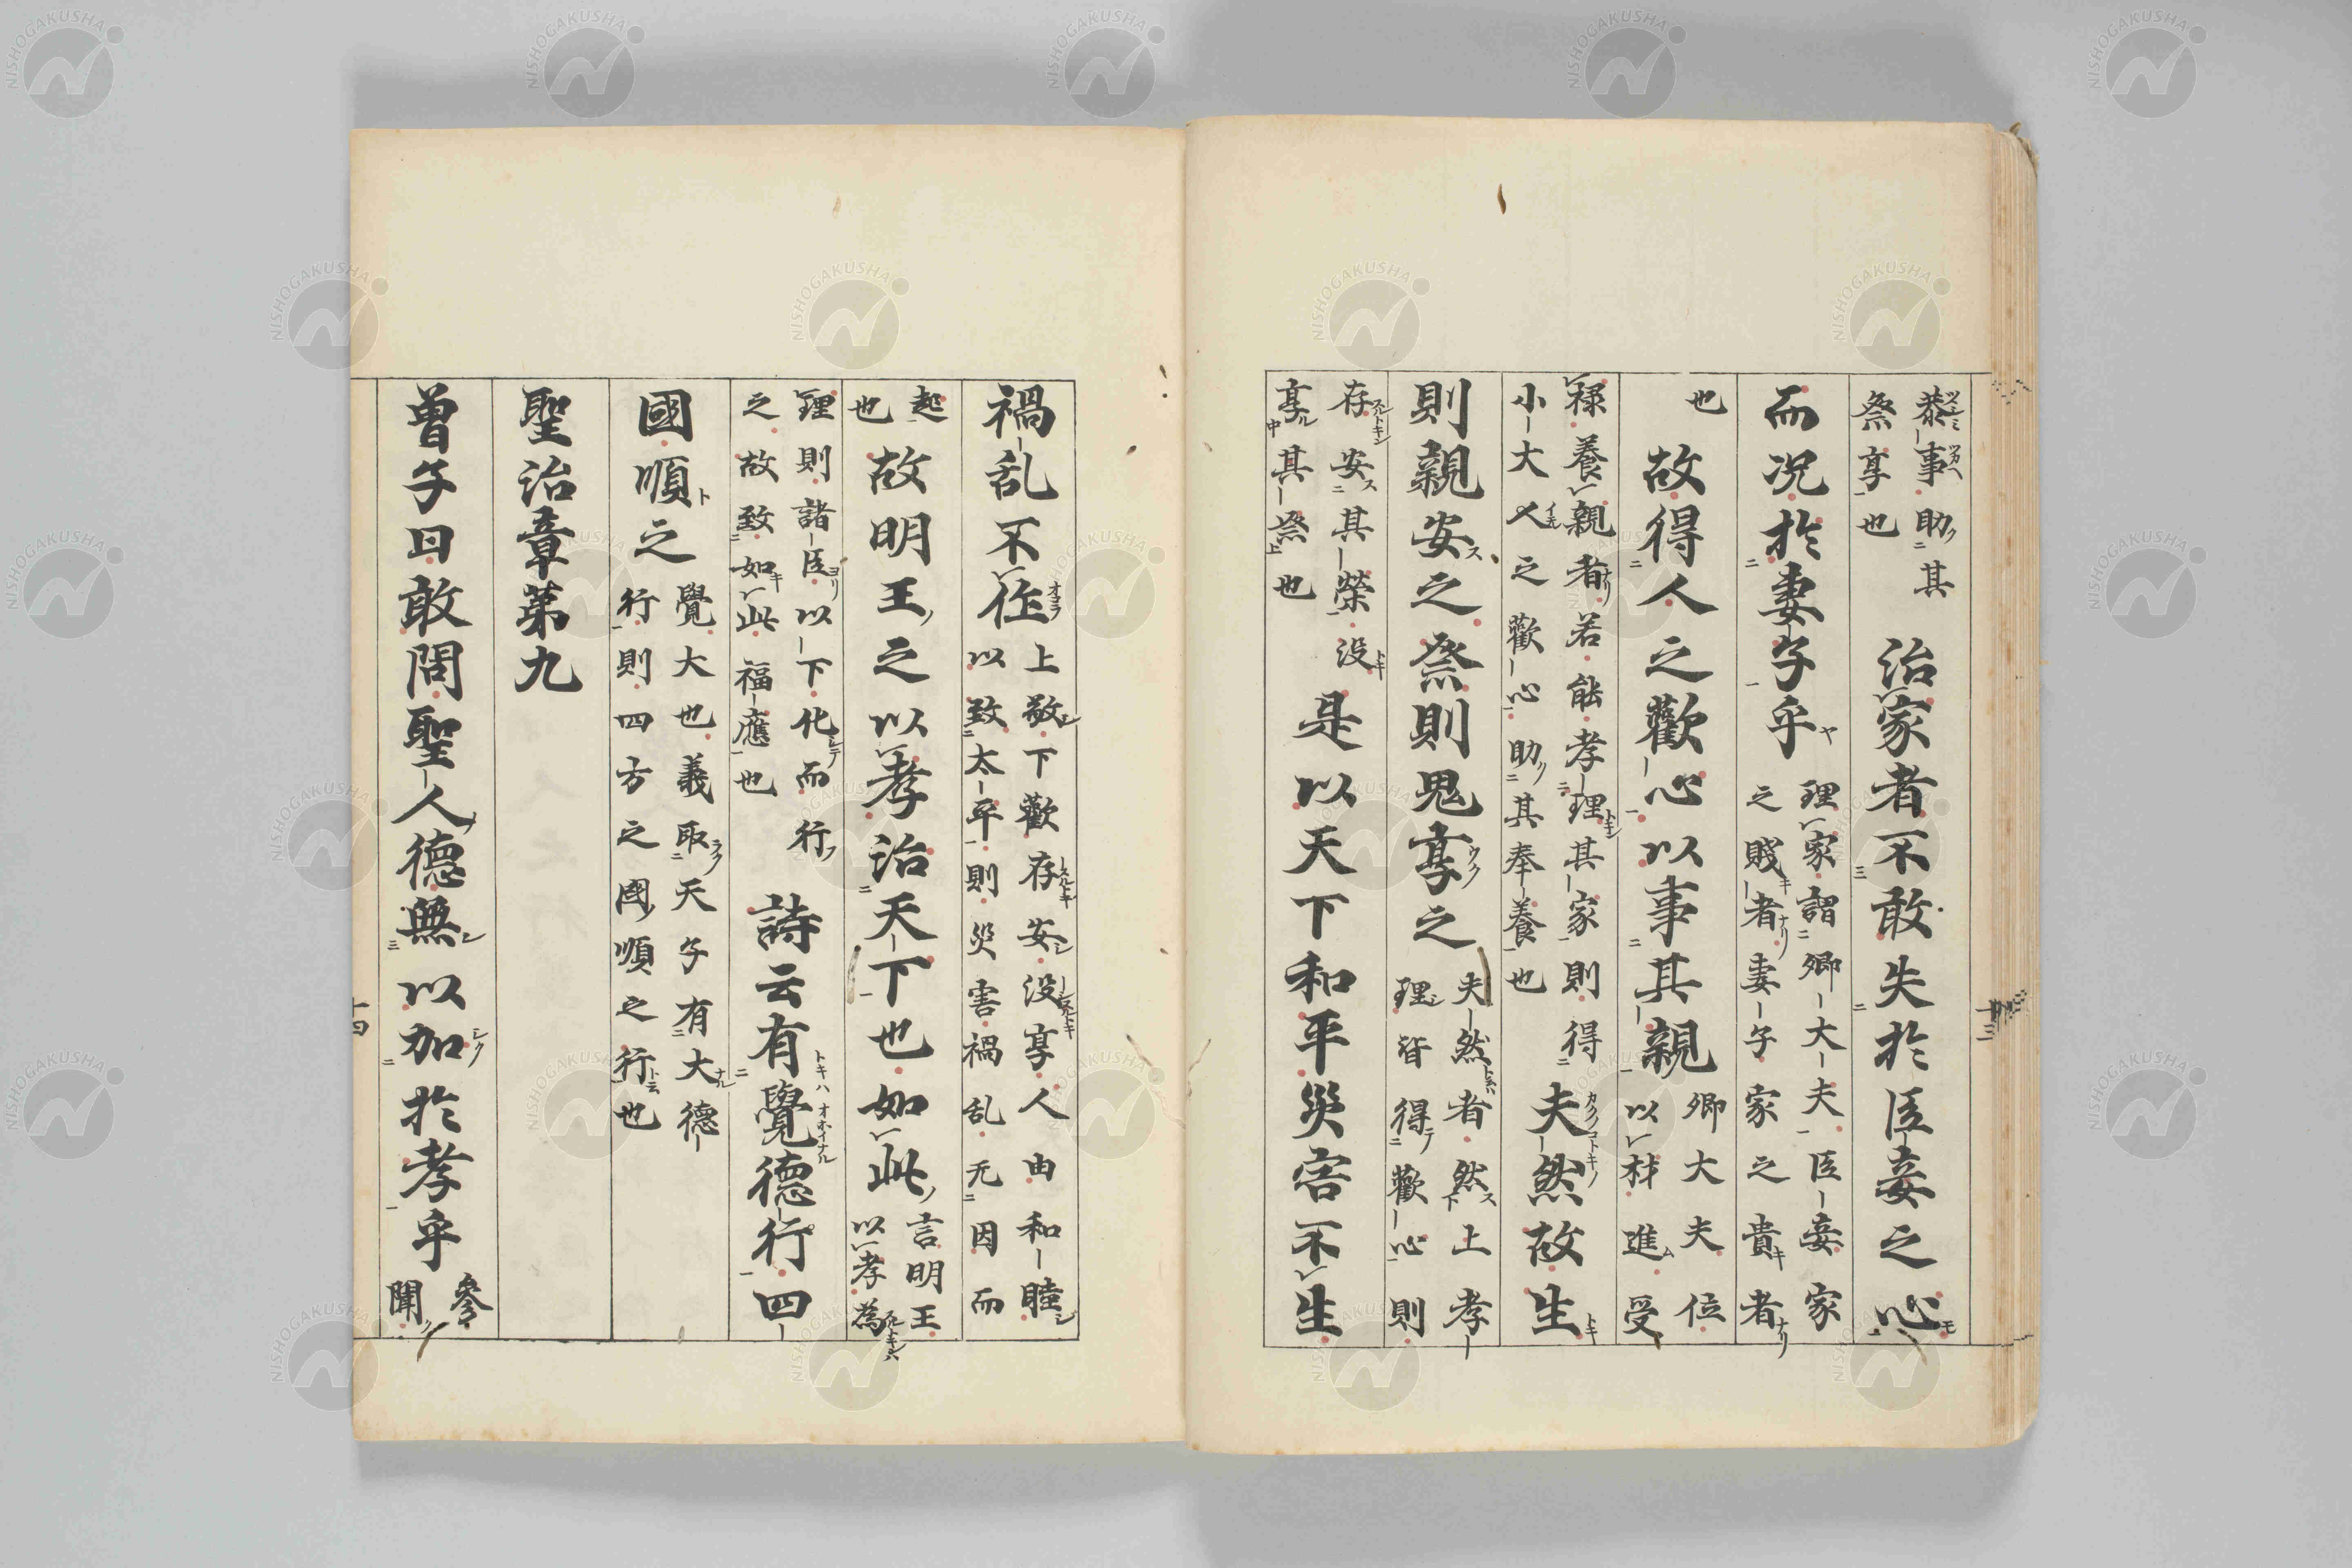 恭事助其
祭享也
治家者不敢失於臣妾之心
而況於妻子乎
理家謂卿大夫臣妾家
之賎者妻子家之貴者
也
故得人之歡心以事其親
卿大夫位
以材進受
禄養親者若能孝理其家則得
小大人之歡心助其奉養也
夫然故生
則親安之祭則鬼享之
夫然者然上孝
理皆得歡心則
存安其榮没
享其祭也
是以天下和平災害不生
禍乱不作
上敬下歡存安没享人由和睦
以致太平則災害禍乱无因而
起
也
故明王之以孝治天下也如此
言明王
以孝為
理則諸臣以下化而行
之故致如此福應也
詩云有覺德行四
國順之
覺大也義取天子有大德
行則四方之國順之行也
聖治章第九
曽子曰敢問聖人德無以加於孝乎
參
聞
十三
十四
NISHOGAKUSHA